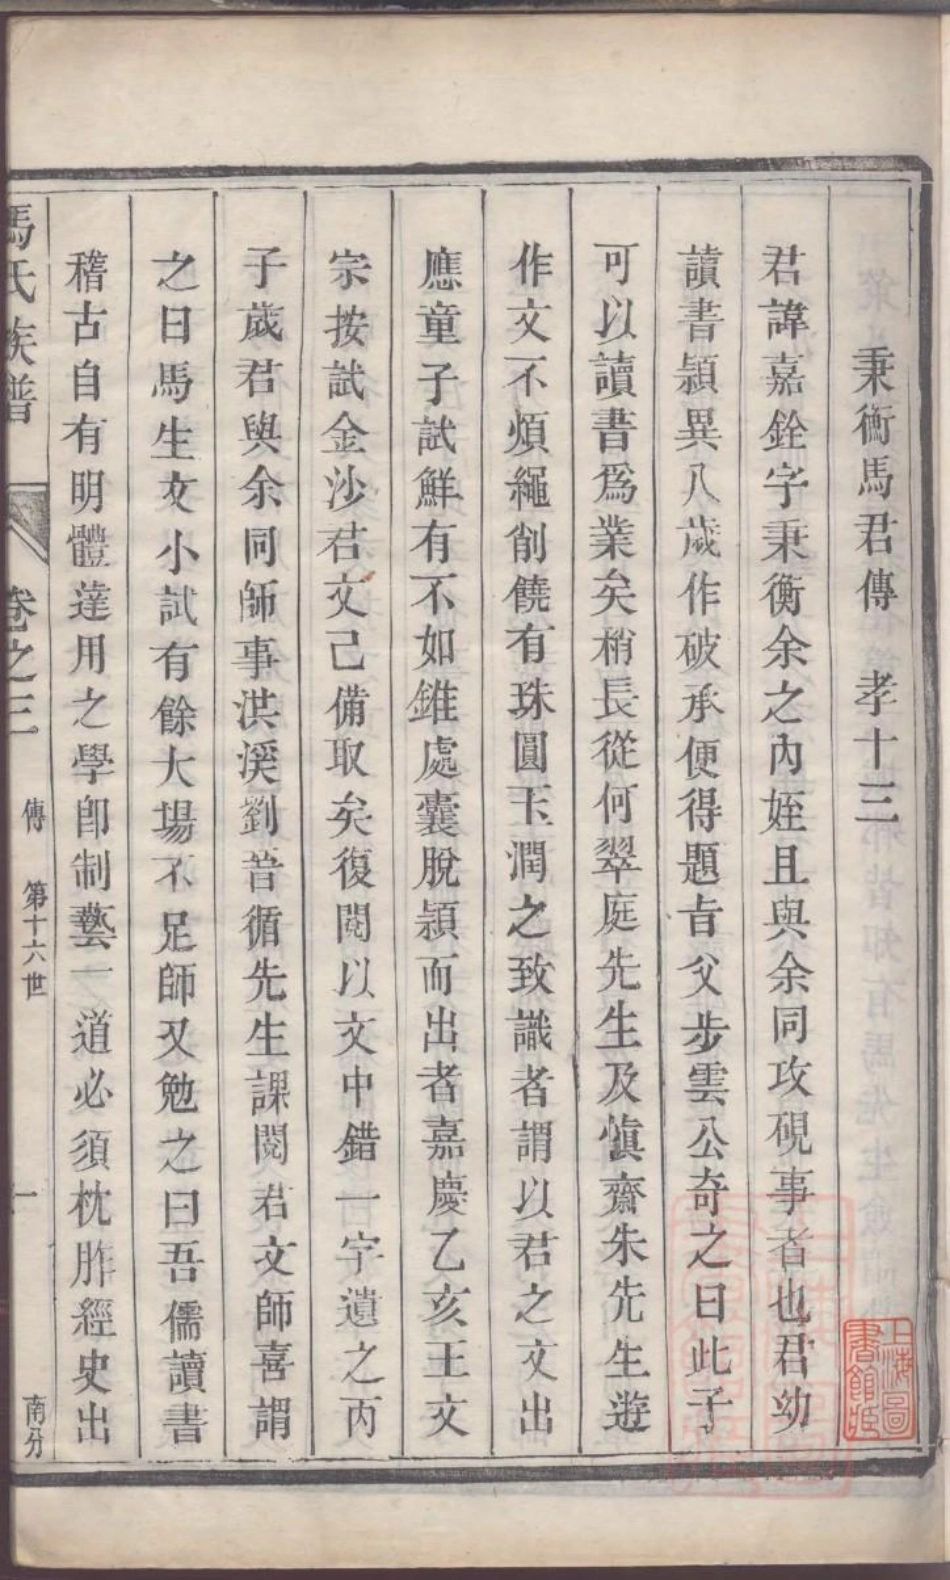 秉衡馬君傳　孝十三
君諱嘉銓字秉衡余之內姪且與余同攻硯事者也君幼
讀書穎異八歲作破承便得題旨父步雲公奇之曰此子
可以讀書爲業矣稍長從何翠庭先生及愼齋朱先生遊
作文不煩繩削饒有珠圓玉潤之致識者謂以君之文出
應童子試鮮有不如錐處囊脫穎而出者嘉慶乙亥王文
宗按試金沙君文已備取矣復閱以文中錯一字遺之丙
子歲君與余同師事洪溪劉普循先生課閱君文師喜謂
之曰馬生文小試有餘大場不足師又勉之曰吾儒讀書
稽古自有明體達用之學卽制藝一道必須枕胙經史出
馬氏族譜　卷之三　傳　第十六世　一　南分
上海圖書館藏